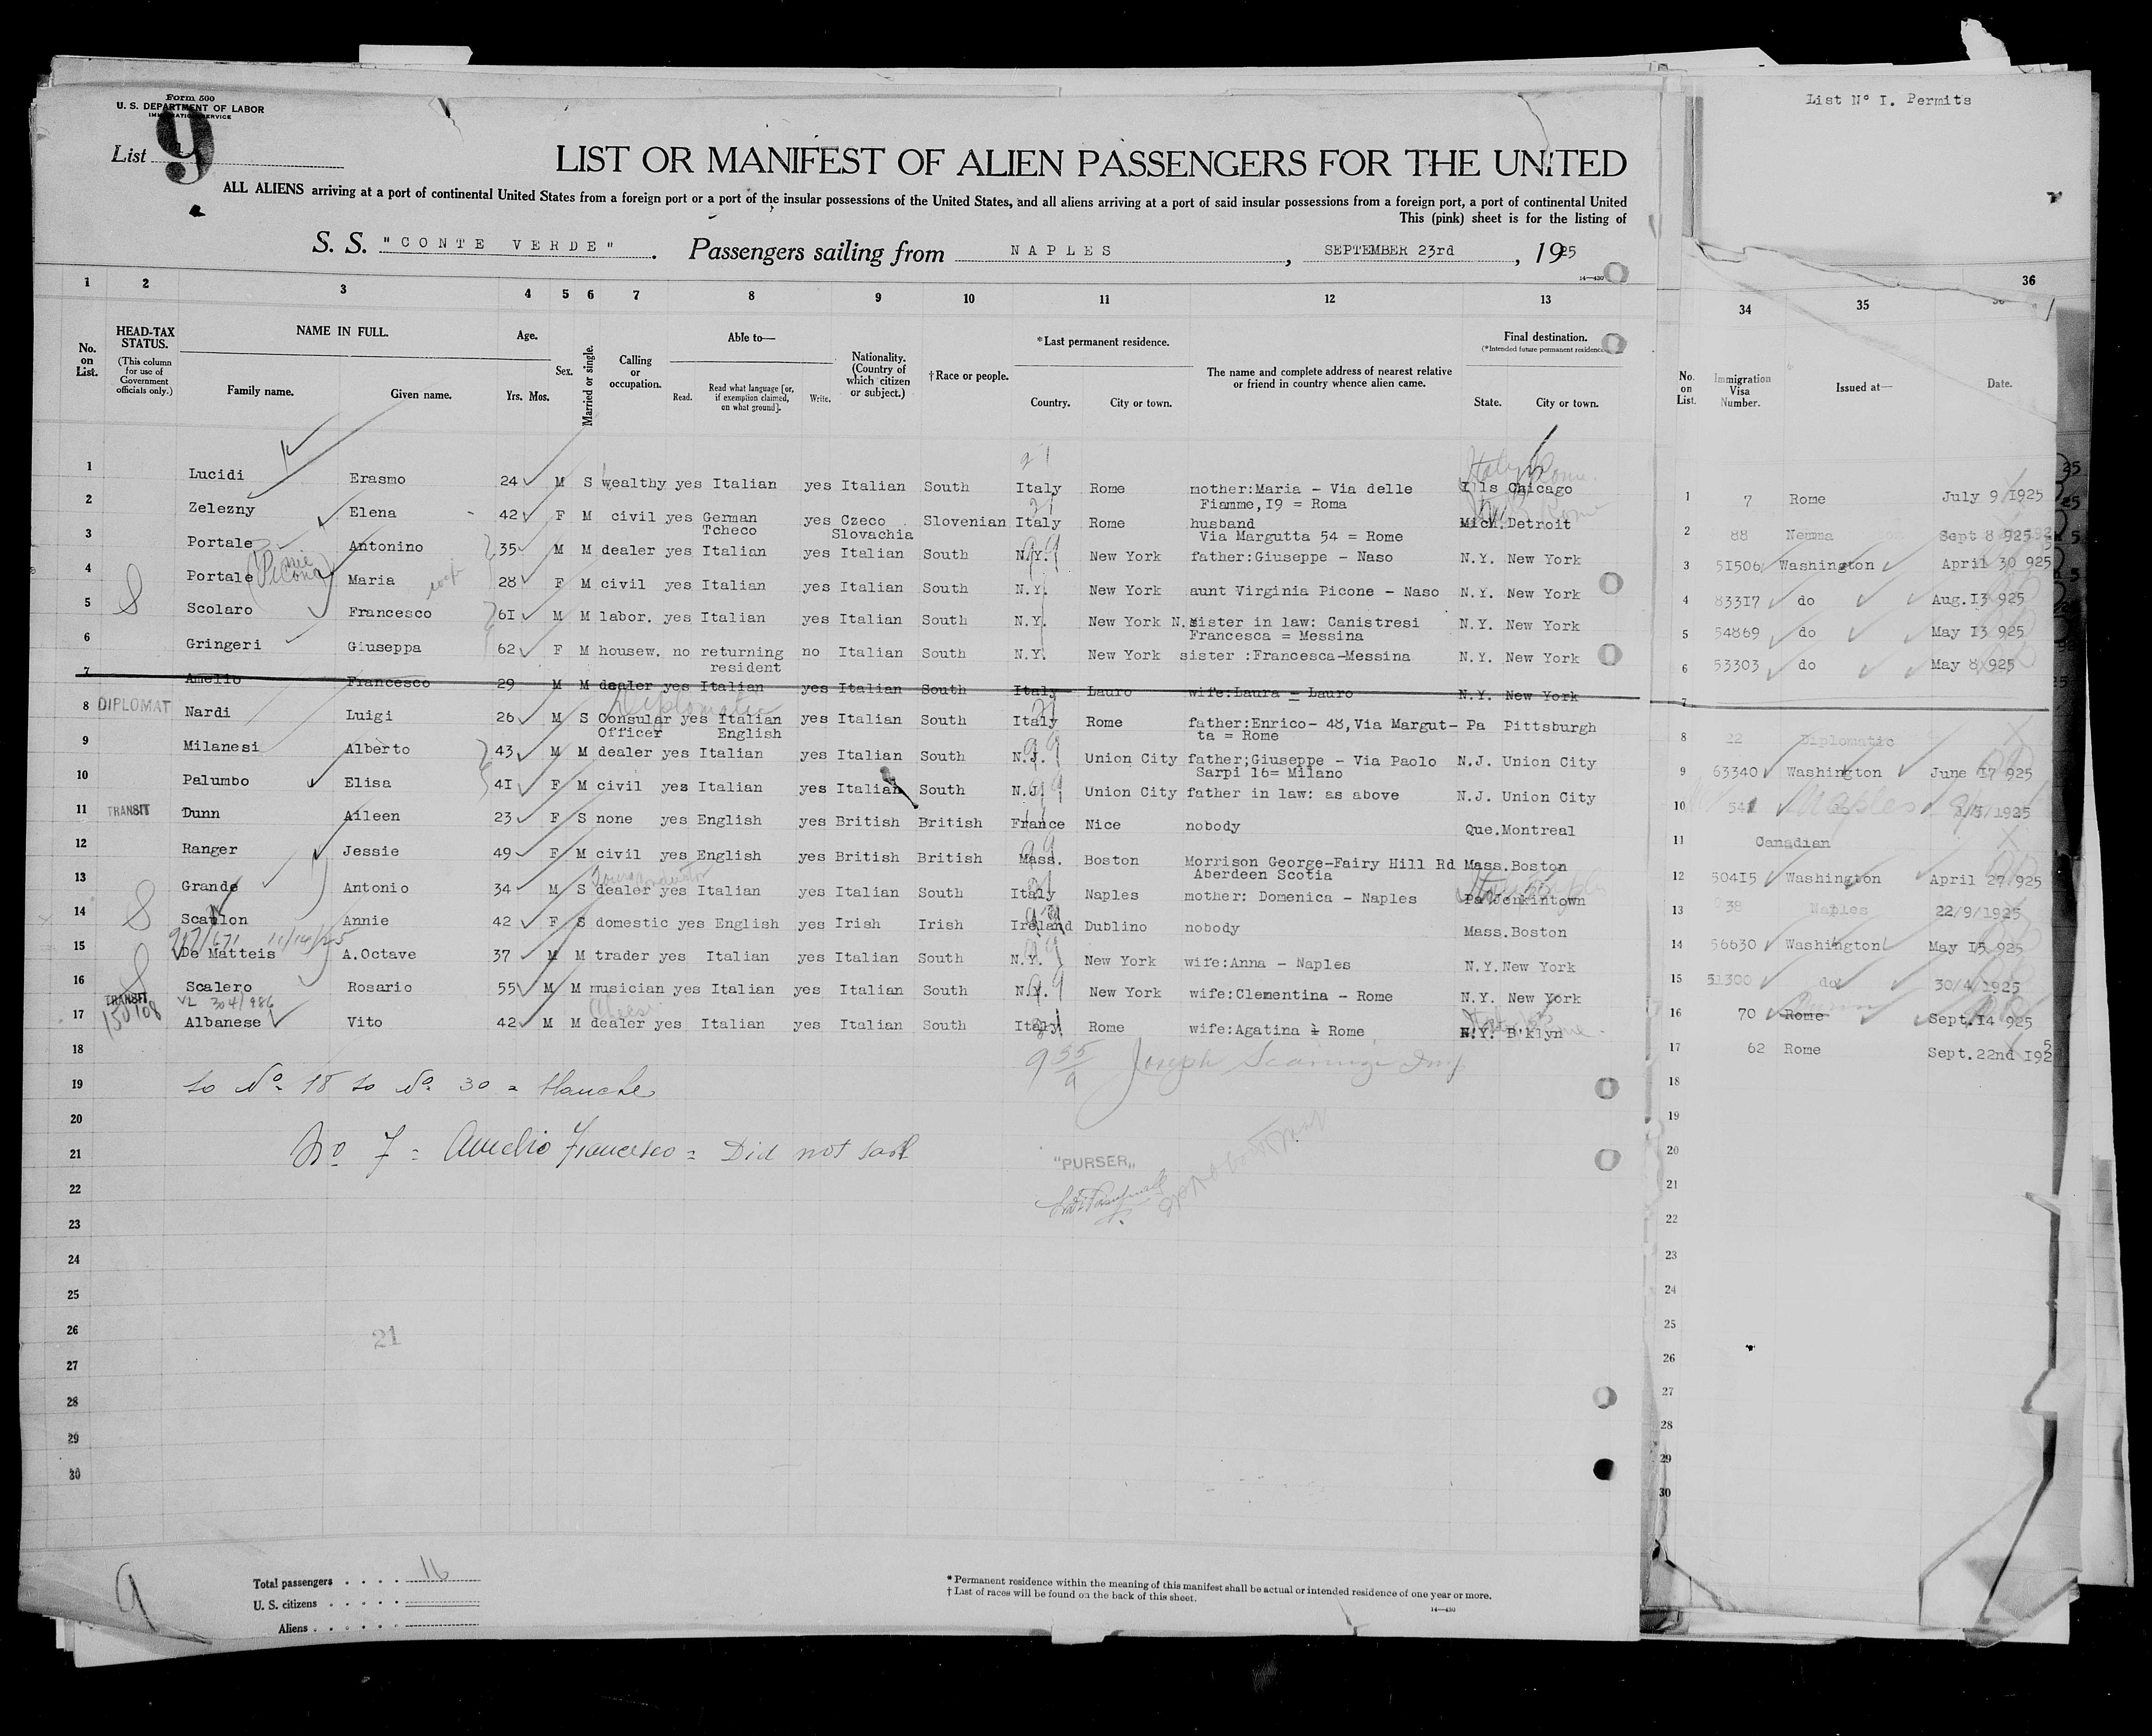 List Nº I. Permits
Form 500
U. S. DEPARTMENT OF LABOR
IMMIGRATION SERVICE
List 9
LIST OR MANIFEST OF ALIEN PASSENGERS FOR THE UNITED
ALL ALIENS arriving at a port of continental United States from a foreign port or a port of the insular possessions of the United States, and all aliens arriving at a port of said insular possessions from a foreign port, a port of continental United
This (pink) sheet is for the listing of
S. S. "CONTE VERDE". Passengers sailing from NAPLES, SEPTEMBER 23rd, 1925
14—430
1 2 3 4 5 6 7 8 9 10 11 12 13 34 35 36
No. on List. HEAD-TAX STATUS. (This column for use of Government officials only.) NAME IN FULL. Family name. Given name. Age. Yrs. Mos. Sex. Married or single. Calling or occupation. Able to— Read. Read what language [or, if exemption claimed, on what ground]. Write. Nationality. (Country of which citizen or subject.) †Race or people. *Last permanent residence. Country. City or town. The name and complete address of nearest relative or friend in country whence alien came. Final destination. (*Intended future permanent residence) State. City or town.
No. on List. Immigration Visa Number. Issued at— Date.
1 Lucidi Erasmo 24 M S wealthy yes Italian yes Italian South Italy Rome mother:Maria - Via delle Ills Chicago 1 7 Rome July 9 1925
Fiamme,I9 = Roma
2 Zelezny Elena 42 F M civil yes German yes Czeco Slovenian Italy Rome husband Mich. Detroit 2 88 Nemma Sept 8 925
Tcheco Slovachia Via Margutta 54 = Rome
3 Portale Antonino 35 M M dealer yes Italian yes Italian South N.Y. New York father:Giuseppe - Naso N.Y. New York 3 5I506 Washington April 30 925
4 Portale Maria 28 F M civil yes Italian yes Italian South N.Y. New York aunt Virginia Picone - Naso N.Y. New York 4 833I7 do Aug.I3 925
5 Scolaro Francesco 6I M M labor. yes Italian yes Italian South N.Y. New York N. sister in law: Canistresi N.Y. New York 5 54869 do May I3 925
Francesca = Messina
6 Gringeri Giuseppa 62 F M housew. no returning no Italian South N.Y. New York sister :Francesca-Messina N.Y. New York 6 53303 do May 8 925
resident
7 Amelio Francesco 29 M M dealer yes Italian yes Italian South Italy Lauro wife:Laura = Lauro N.Y. New York 7
Diplomatic
8 DIPLOMAT Nardi Luigi 26 M S Consular yes Italian yes Italian South Italy Rome father:Enrico- 48,Via Margut- Pa Pittsburgh 8 22 Diplomatic
Officer English ta = Rome
9 Milanesi Alberto 43 M M dealer yes Italian yes Italian South N.J. Union City father;Giuseppe - Via Paolo N.J. Union City 9 63340 Washington June I7 925
Sarpi 16= Milano
10 Palumbo Elisa 4I F M civil yes Italian yes Italian South N.J. Union City father in law: as above N.J. Union City 10 541 Naples
11 TRANSIT Dunn Aileen 23 F S none yes English yes British British France Nice nobody Que.Montreal 11 Canadian
12 Ranger Jessie 49 F M civil yes English yes British British Mass. Boston Morrison George-Fairy Hill Rd Mass.Boston 12 504I5 Washington April 27 925
Aberdeen Scotia
13 Grande Antonio 34 M S dealer yes Italian yes Italian South Italy Naples mother: Domenica - Naples Pa Jenkintown 13 38 Naples 22/9/1925
14 Scanlon Annie 42 F S domestic yes English yes Irish Irish Ireland Dublino nobody Mass.Boston 14 56630 Washington May I5 925
11/14/25
15 De Matteis A.Octave 37 M M trader yes Italian yes Italian South N.Y. New York wife:Anna - Naples N.Y.New York 15 5I300 do 30/4 1925
16 Scalero Rosario 55 M M musician yes Italian yes Italian South N.Y. New York wife:Clementina - Rome N.Y. New York 16 70 Rome Sept.I4 925
TRANSIT VL 304/986
17 Albanese Vito 42 M M dealer yes Italian yes Italian South Italy Rome wife:Agatina Rome N.Y. B'klyn 17 62 Rome Sept.22nd I925
18 18
19 to Nº 18 to Nº 30 = blanche 19
20 20
21 No 7 = Amelio Francesco = Did not sail 21
"PURSER"
22 22
23 23
24 24
25 25
26 21 26
27 27
28 28
29 29
30 30
9
Total passengers . . . . 16
U. S. citizens . . . . .
Aliens . . . . . .
* Permanent residence within the meaning of this manifest shall be actual or intended residence of one year or more.
† List of races will be found on the back of this sheet.
14—430